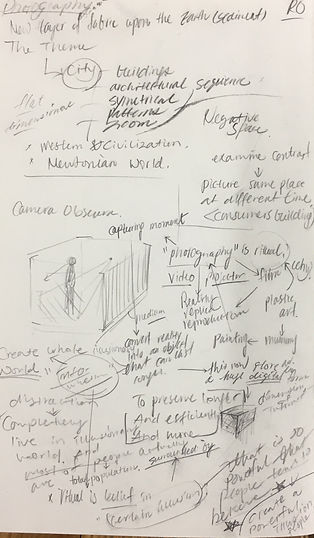 Photography."
RO
New layer of fabric upon the Earth (sediment)
The Theme
City
buildings
architectural sequence
symetrical
patterns
zoom
flat
dimensional
Negative
Space.
* Western Civilization.
* Newtonian World.
examine contrast
picture same place
at different time.
<consumers building>
Camera Obscura.
capturing moment
"photography" is ritual,
Video projector film
Reality
replica
reproduction
plastic
art.
medium
convert reality
into an object
that can last
longer.
Painting
mummy
Create whole
World
illusionary
a huge digital
To preserve longer
And efficiently
And more
distraction
Completely
live in illusionary
world. And
most of people
are
population.
surrounded by
* Ritual is belief in
"certain
What is so
powerful that
people tend to
believe
create a
powerful